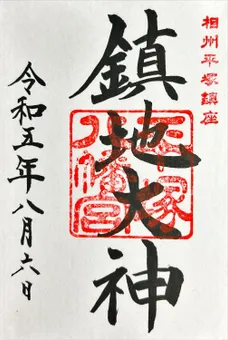 相州平塚鎮座
鎮地大神
平塚
八幡宮
令和五年八月六日